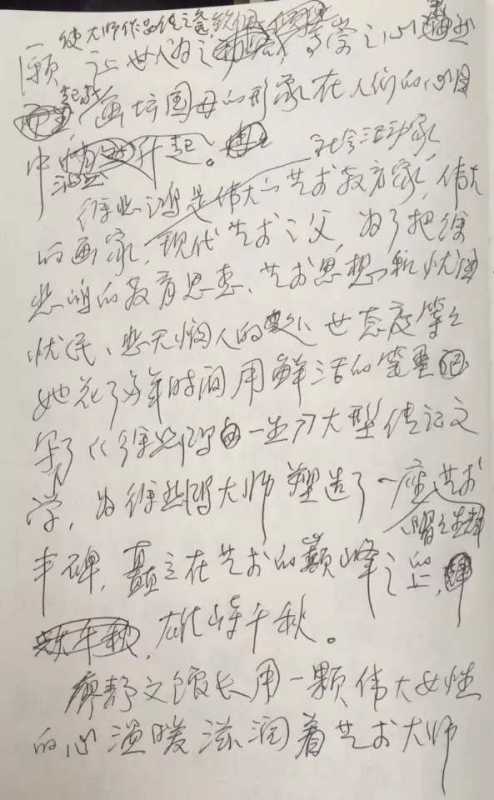 使大师作品使之
愿让世人为之、崇之心
画坛国母的形象在人们的心目
中升起。
社会活动家
徐悲鸿是伟大的艺术教育家，伟大
的画家，现代艺术之父，为了把徐
悲鸿的教育思想、艺术思想和忧国
忧民、悲天悯人的处世态度等之
她花了多年时间用鲜活的笔墨回
写了《徐悲鸿一生》大型传记文
学，为徐悲鸿大师塑造了一座艺术
丰碑，矗立在艺术的巅峰之上，
雄峙千秋。
廖静文馆长用一颗伟大女性
的心温暖滋润着艺术大师